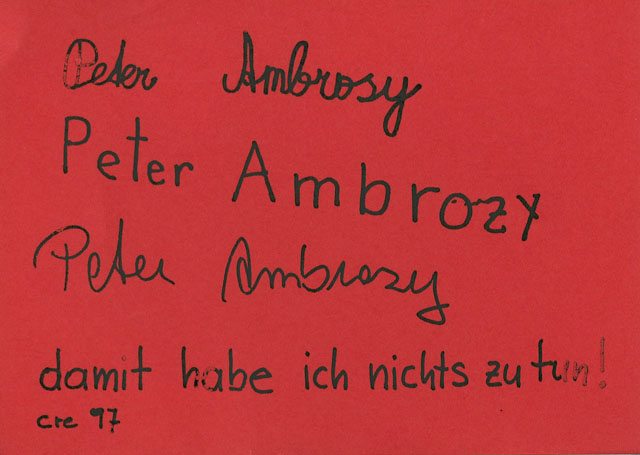 Peter Ambrosy
Peter Ambrozy
Peter Ambrosy
damit habe ich nichts zu tun!
cre 97